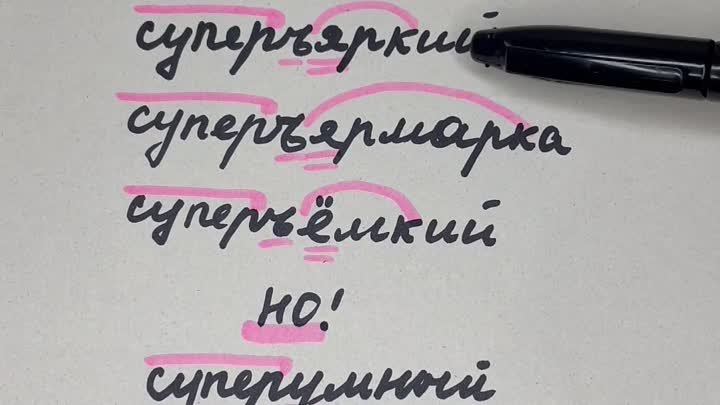 суперъяркий
суперъярмарка
суперъёмкий
НО!
суперумный